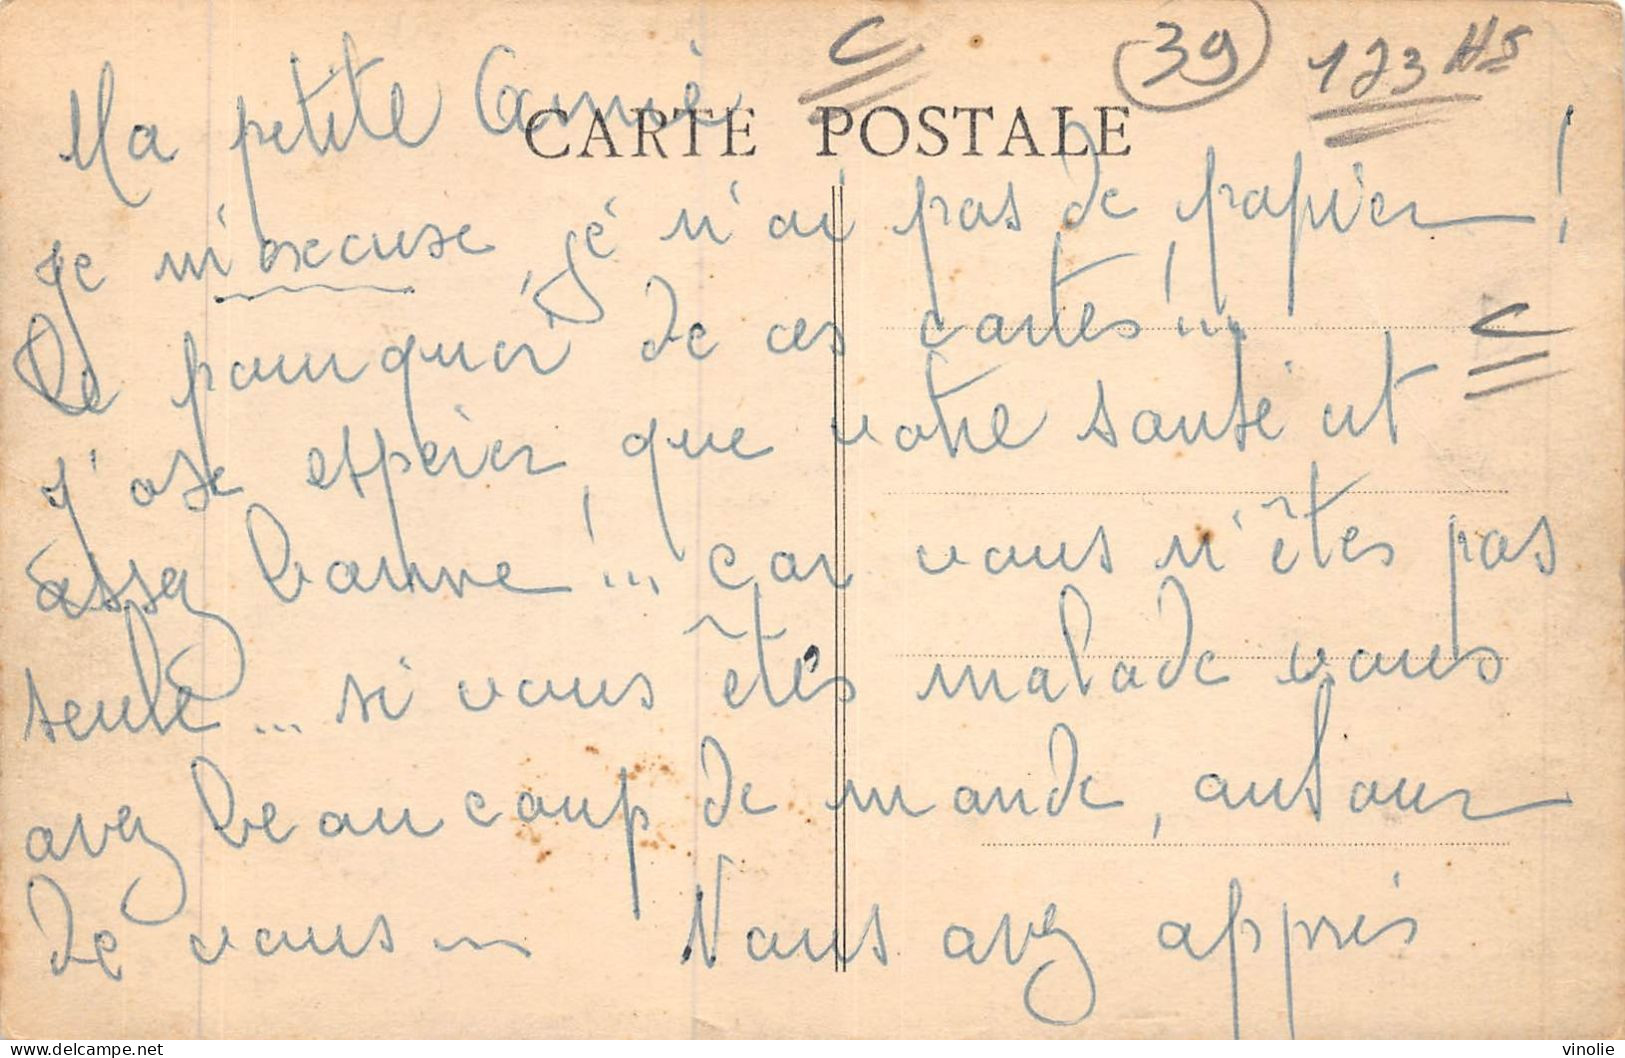 C 39 123 HS
Ma petite Aimée
CARTE POSTALE
Je m'excuse, je n'ai pas de papier !
Le pourquoi de ces cartes ...
C
J'ose espérer, que votre santé est
assez bonne ! ... car vous n'êtes pas
seule ... si vous êtes malade vous
avez beaucoup de monde, autour
de vous ... Vous avez appris
delcampe.net
vinolie